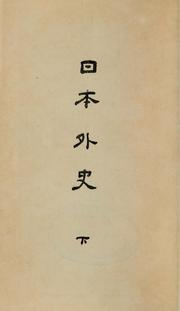 日本外史
下